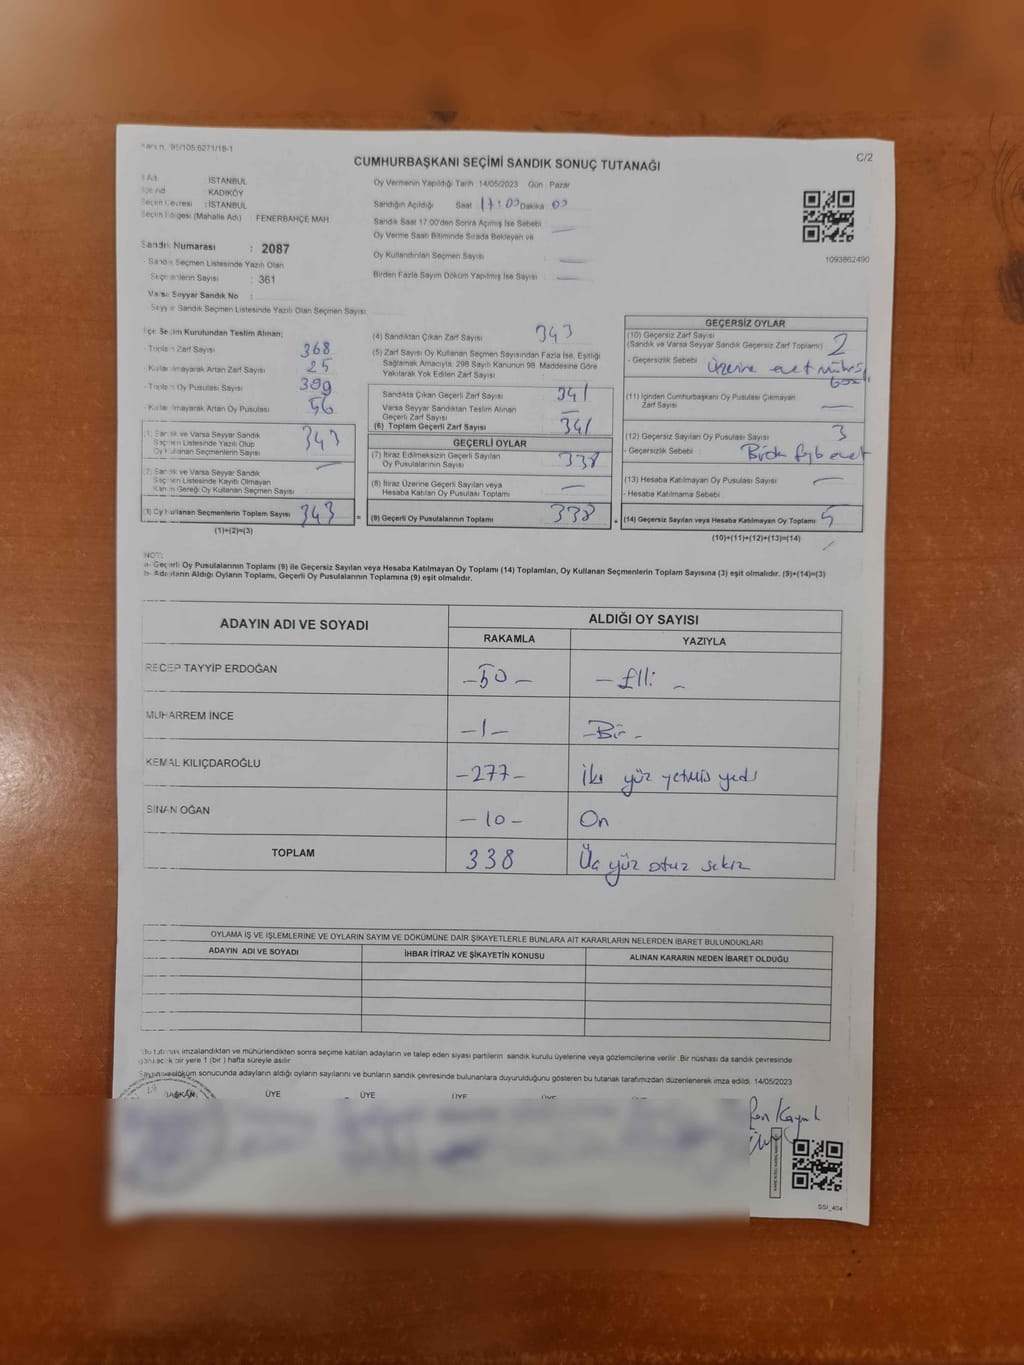 95/105.6271/18-1
C/2
CUMHURBAŞKANI SEÇİMİ SANDIK SONUÇ TUTANAĞI
İSTANBUL
KADIKÖY
Seçim Çevresi : İSTANBUL
Seçim Bölgesi (Mahalle Adı) FENERBAHÇE MAH.
Sandık Numarası : 2087
- Sandık Seçmen Listesinde Yazılı Olan
Seçmenlerin Sayısı : 361
Varsa Seyyar Sandık No :
- Seyyar Sandık Seçmen Listesinde Yazılı Olan Seçmen Sayısı :
Oy Vermenin Yapıldığı Tarih 14/05/2023 Gün : Pazar
Sandığın Açıldığı Saat 17:00 Dakika 00
Sandık Saat 17:00'den Sonra Açılmış İse Sebebi
Oy Verme Saati Bitiminde Sırada Bekleyen ve
Oy Kullandırılan Seçmen Sayısı
Birden Fazla Sayım Döküm Yapılmış İse Sayısı
1093862490
İlçe Seçim Kurulundan Teslim Alınan;
- Toplam Zarf Sayısı 368
- Kullanılmayarak Artan Zarf Sayısı 25
- Toplam Oy Pusulası Sayısı 399
- Kullanılmayarak Artan Oy Pusulası 56
(1) Sandık ve Varsa Seyyar Sandık
Seçmen Listesinde Yazılı Olup
Oy Kullanan Seçmenlerin Sayısı 343
(2) Sandık ve Varsa Seyyar Sandık
Seçmen Listesinde Kayıtlı Olmayan
Kanun Gereği Oy Kullanan Seçmen Sayısı
(3) Oy Kullanan Seçmenlerin Toplam Sayısı 343
(1)+(2)=(3)
(4) Sandıktan Çıkan Zarf Sayısı 343
(5) Zarf Sayısı Oy Kullanan Seçmen Sayısından Fazla İse, Eşitliği
Sağlamak Amacıyla, 298 Sayılı Kanunun 98. Maddesine Göre
Yakılarak Yok Edilen Zarf Sayısı
Sandıkta Çıkan Geçerli Zarf Sayısı 341
Varsa Seyyar Sandıktan Teslim Alınan
Geçerli Zarf Sayısı
(6) Toplam Geçerli Zarf Sayısı 341
GEÇERLİ OYLAR
(7) İtiraz Edilmeksizin Geçerli Sayılan
Oy Pusulalarının Sayısı 338
(8) İtiraz Üzerine Geçerli Sayılan veya
Hesaba Katılan Oy Pusulası Toplamı
= (9) Geçerli Oy Pusulalarının Toplamı 338
GEÇERSİZ OYLAR
(10) Geçersiz Zarf Sayısı
(Sandık ve Varsa Seyyar Sandık Geçersiz Zarf Toplamı) 2
- Geçersizlik Sebebi : Üzerine evet
(11) İçinden Cumhurbaşkanı Oy Pusulası Çıkmayan
Zarf Sayısı
(12) Geçersiz Sayılan Oy Pusulası Sayısı 3
- Geçersizlik Sebebi : evet
(13) Hesaba Katılmayan Oy Pusulası Sayısı
- Hesaba Katılmama Sebebi
+ (14) Geçersiz Sayılan veya Hesaba Katılmayan Oy Toplamı 5
(10)+(11)+(12)+(13)=(14)
NOT:
a- Geçerli Oy Pusulalarının Toplamı (9) ile Geçersiz Sayılan veya Hesaba Katılmayan Oy Toplamı (14) Toplamları, Oy Kullanan Seçmenlerin Toplam Sayısına (3) eşit olmalıdır. (9)+(14)=(3)
b- Adayların Aldığı Oyların Toplamı, Geçerli Oy Pusulalarının Toplamına (9) eşit olmalıdır.
ADAYIN ADI VE SOYADI
ALDIĞI OY SAYISI
RAKAMLA YAZIYLA
RECEP TAYYİP ERDOĞAN -50- -Elli-
MUHARREM İNCE -1- -Bir-
KEMAL KILIÇDAROĞLU -277- İki yüz yetmiş yedi
SİNAN OĞAN -10- On
TOPLAM 338 Üç yüz otuz sekiz
OYLAMA İŞ VE İŞLEMLERİNE VE OYLARIN SAYIM VE DÖKÜMÜNE DAİR ŞİKAYETLERLE BUNLARA AİT KARARLARIN NELERDEN İBARET BULUNDUKLARI
ADAYIN ADI VE SOYADI İHBAR İTİRAZ VE ŞİKAYETİN KONUSU ALINAN KARARIN NEDEN İBARET OLDUĞU
Bu tutanak imzalandıktan ve mühürlendikten sonra seçime katılan adayların ve talep eden siyasi partilerin sandık kurulu üyelerine veya gözlemcilerine verilir. Bir nüshası da sandık çevresinde
görülecek bir yere 1 (bir) hafta süreyle asılır.
Sayım ve döküm sonucunda adayların aldığı oyların sayılarını ve bunların sandık çevresinde bulunanlara duyurulduğunu gösteren bu tutanak tarafımızdan düzenlenerek imza edildi. 14/05/2023
BAŞKAN ÜYE ÜYE ÜYE ÜYE
SSI_404